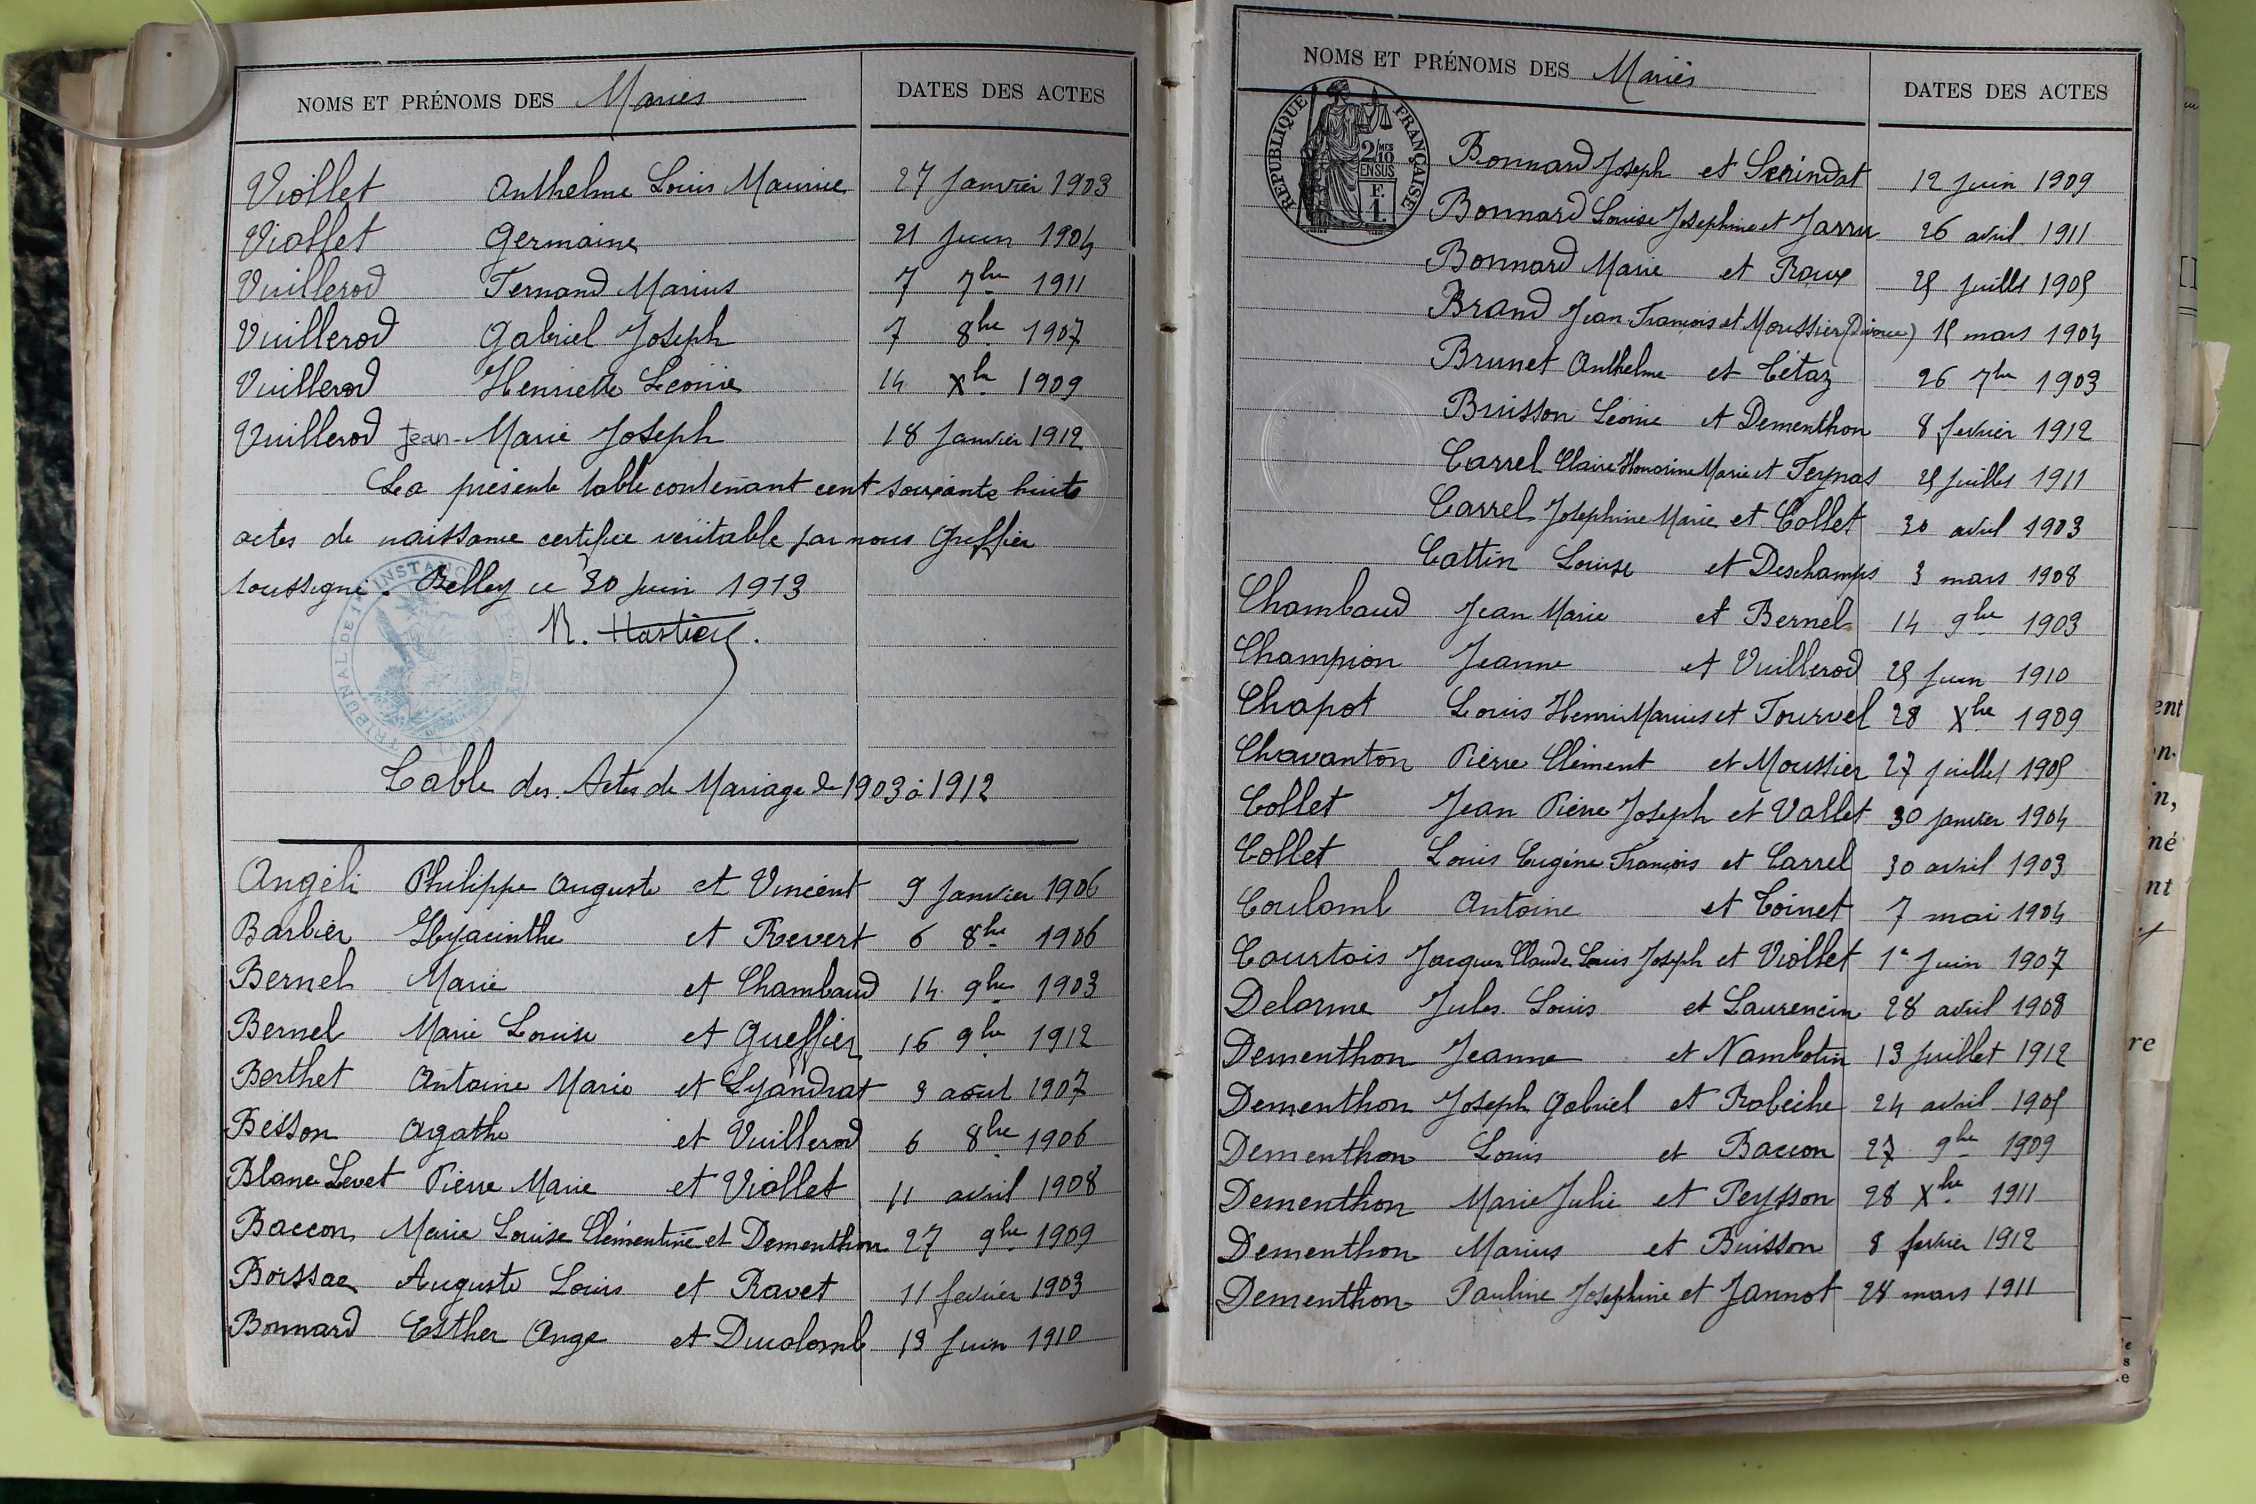 NOMS ET PRÉNOMS DES Mariés DATES DES ACTES
Viollet Anthelme Louis Maurice 27 Janvier 1903
Viollet Germaine 21 Juin 1904
Vuillerod Fernand Marius 7 7bre 1911
Vuillerod Gabriel Joseph 7 8bre 1907
Vuillerod Henriette Léonie 14 Xbre 1909
Vuillerod Jean-Marie Joseph 18 Janvier 1912
La présente table contenant cent soixante huite
actes de naissance certifiée véritable par nous Greffier
soussigné. Belley ce 30 Juin 1913
R.
TRIBUNAL DE 1ère INSTANCE
Table des Actes de Mariage de 1903 à 1912
Angéli Philippe Auguste et Vincent 9 Janvier 1906
Barbier Hyacinthe et Revert 6 8bre 1906
Bernel Marie et Chambaud 14 9bre 1903
Bernel Marie Louise et Gueffier 16 9bre 1912
Berthet Antoine Marie et Lyandrat 3 août 1907
Besson Agathe et Vuillerod 6 8bre 1906
Blanc Levet Pierre Marie et Viollet 11 avril 1908
Baccon Marie Louise Clémentine et Dementhon 27 9bre 1909
Boissac Auguste Louis et Ravet 11 février 1903
Bonnard Esther Ange et Ducolomb 13 Juin 1910
NOMS ET PRÉNOMS DES Mariés DATES DES ACTES
RÉPUBLIQUE FRANÇAISE
2/10 MES
EN SUS
F.
1.
Bonnard Joseph et Serindat 12 Juin 1909
Bonnard Louise Joséphine et Jarru 26 avril 1911
Bonnard Marie et Roux 25 juillet 1905
Brand Jean François et Moussier (Divorce) 15 mars 1904
Brunet Anthelme et Tétaz 26 7bre 1903
Buisson Léonie et Dementhon 8 février 1912
Carrel Claire Honorine Marie et Teynas 25 juillet 1911
Carrel Joséphine Marie et Collet 30 avril 1903
Cattin Louise et Deschamps 3 mars 1908
Chambaud Jean Marie et Bernel 14 9bre 1903
Champion Jeanne et Vuillerod 25 Juin 1910
Chapot Louis Henri Marius et Tourvel 28 Xbre 1909
Chavanton Pierre Clément et Moussier 27 juillet 1905
Collet Jean Pierre Joseph et Vallet 30 janvier 1904
Collet Louis Eugène François et Carrel 30 avril 1903
Coulomb Antoine et Toinet 7 mai 1904
Courtois Jacques Claude Louis Joseph et Viollet 1er Juin 1907
Delorme Jules Louis et Laurencin 28 avril 1908
Dementhon Jeanne et Nambotin 13 juillet 1912
Dementhon Joseph Gabriel et Rabeihe 24 avril 1905
Dementhon Louis et Baccon 27 9bre 1909
Dementhon Marie Julie et Peysson 28 Xbre 1911
Dementhon Marius et Buisson 8 février 1912
Dementhon Pauline Joséphine et Jannot 28 mars 1911